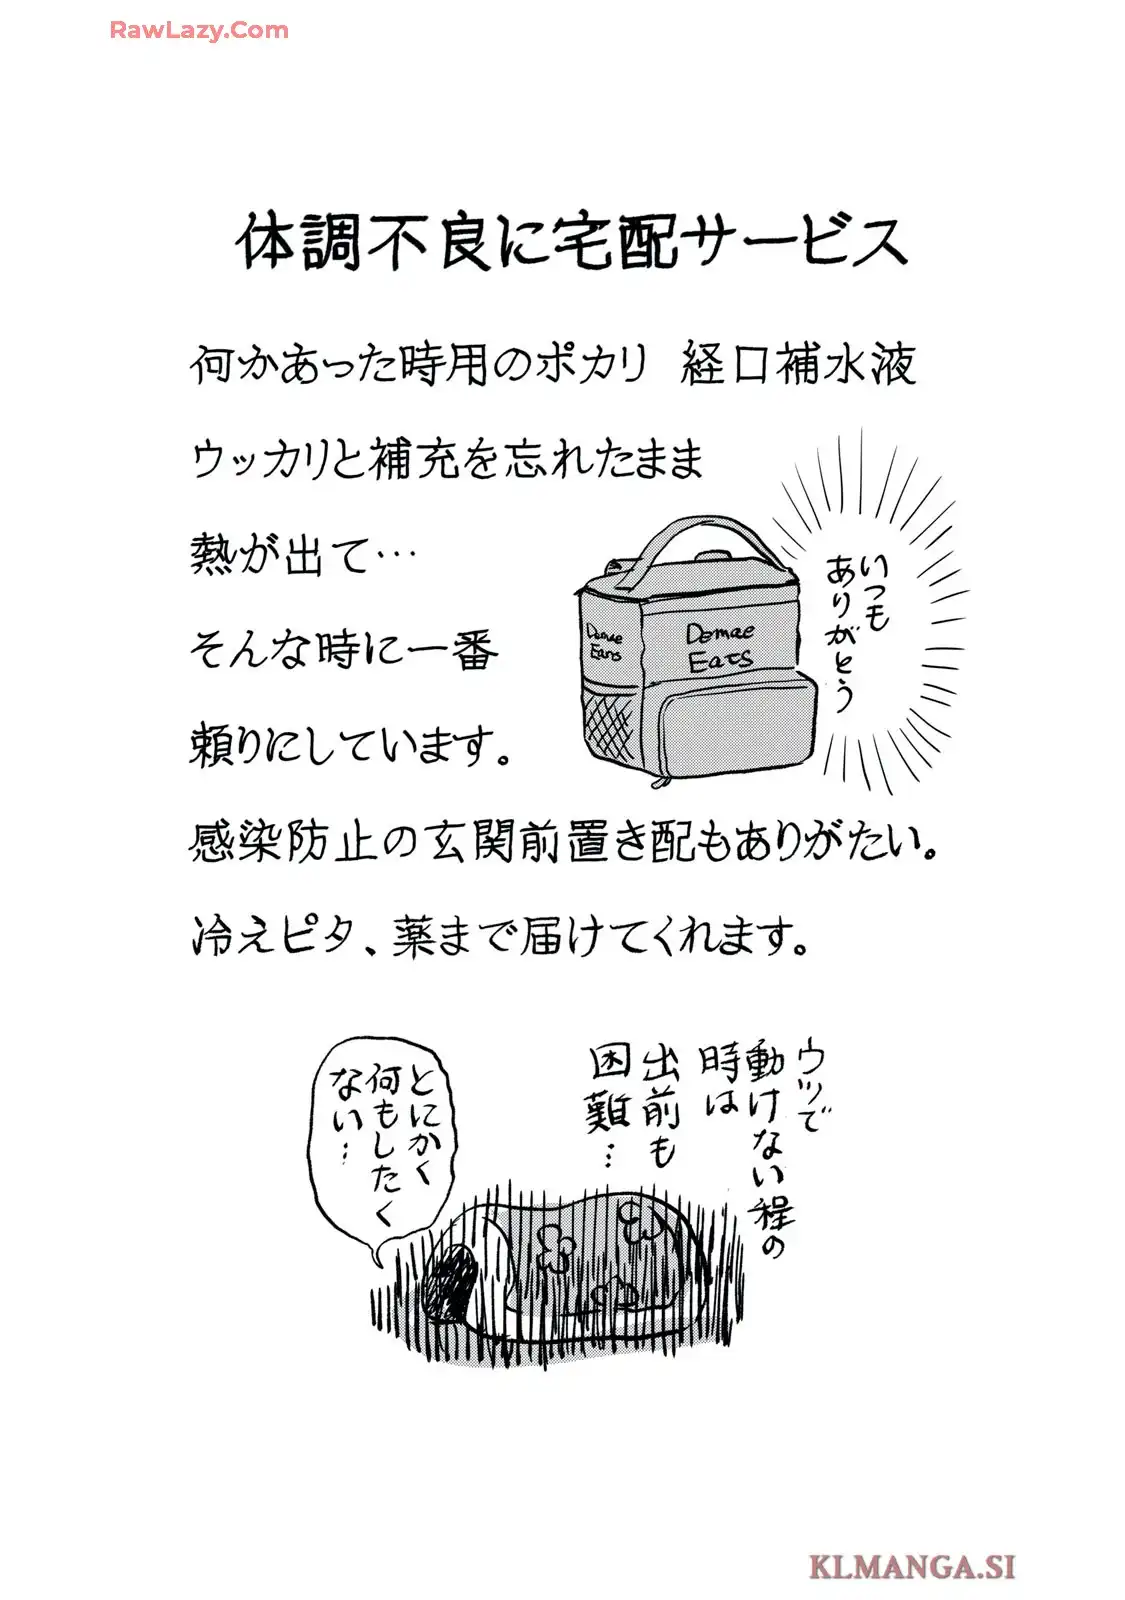 RawLazy.Com
体調不良に宅配サービス
何かあった時用のポカリ 経口補水液
ウッカリと補充を忘れたまま
熱が出て…
そんな時に一番
頼りにしています。
いつも
ありがとう
Demae
Eats
Demae
Eats
感染防止の玄関前置き配もありがたい。
冷えピタ、薬まで届けてくれます。
ウツで
動けない程の
時は
出前も
困難…
とにかく
何もしたく
ない…
KLMANGA.SI